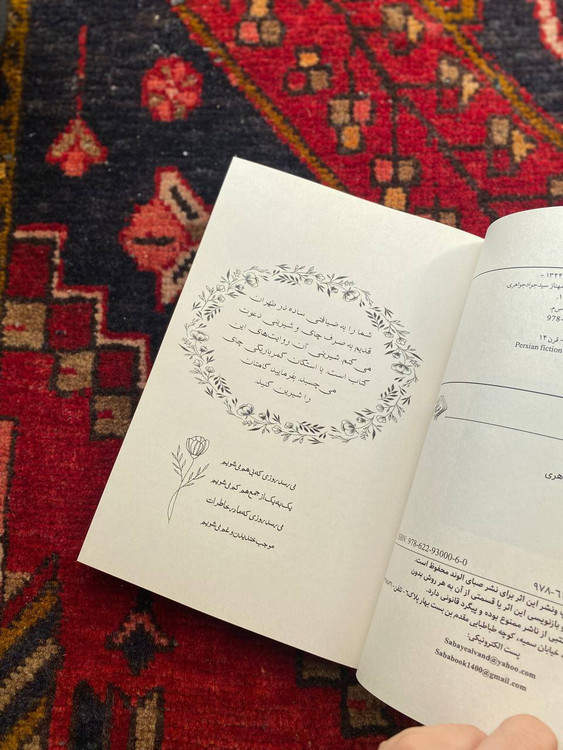 شما را به ضیافتی ساده در طهران
قدیم به صرف چای و شیرینی دعوت
می‌کنم. شیرینی آن روایت‌های این
کتاب است. با استکان کمرباریکی چای
می‌چسبد. بفرمایید کامتان
را شیرین کنید.
می رسد روزی که بی هم می شویم
یک به یک از جمع هم کم می شویم
می رسد روزی که ما در خاطرات
موجب خندیدن و غم می شویم
۱۳۲۴ -
مهناز سیدجوادجواهری
978-
- قرن ۱۴
Persian fiction
هری
ISBN 978-622-93000-6-0
۹۷۸-۶
پ ونشر این اثر برای نشر صبای الوند محفوظ است.
بازنویسی این اثر یا قسمتی از آن به هر روش بدون
کتبی از ناشر ممنوع بوده و پیگرد قانونی دارد.
خیابان سمیه، کوچه طباطبایی مقدم بن بست بهار پلاک
پست الکترونیکی:
Sabayealvand@yahoo.com
Sababook1400@gmail.com